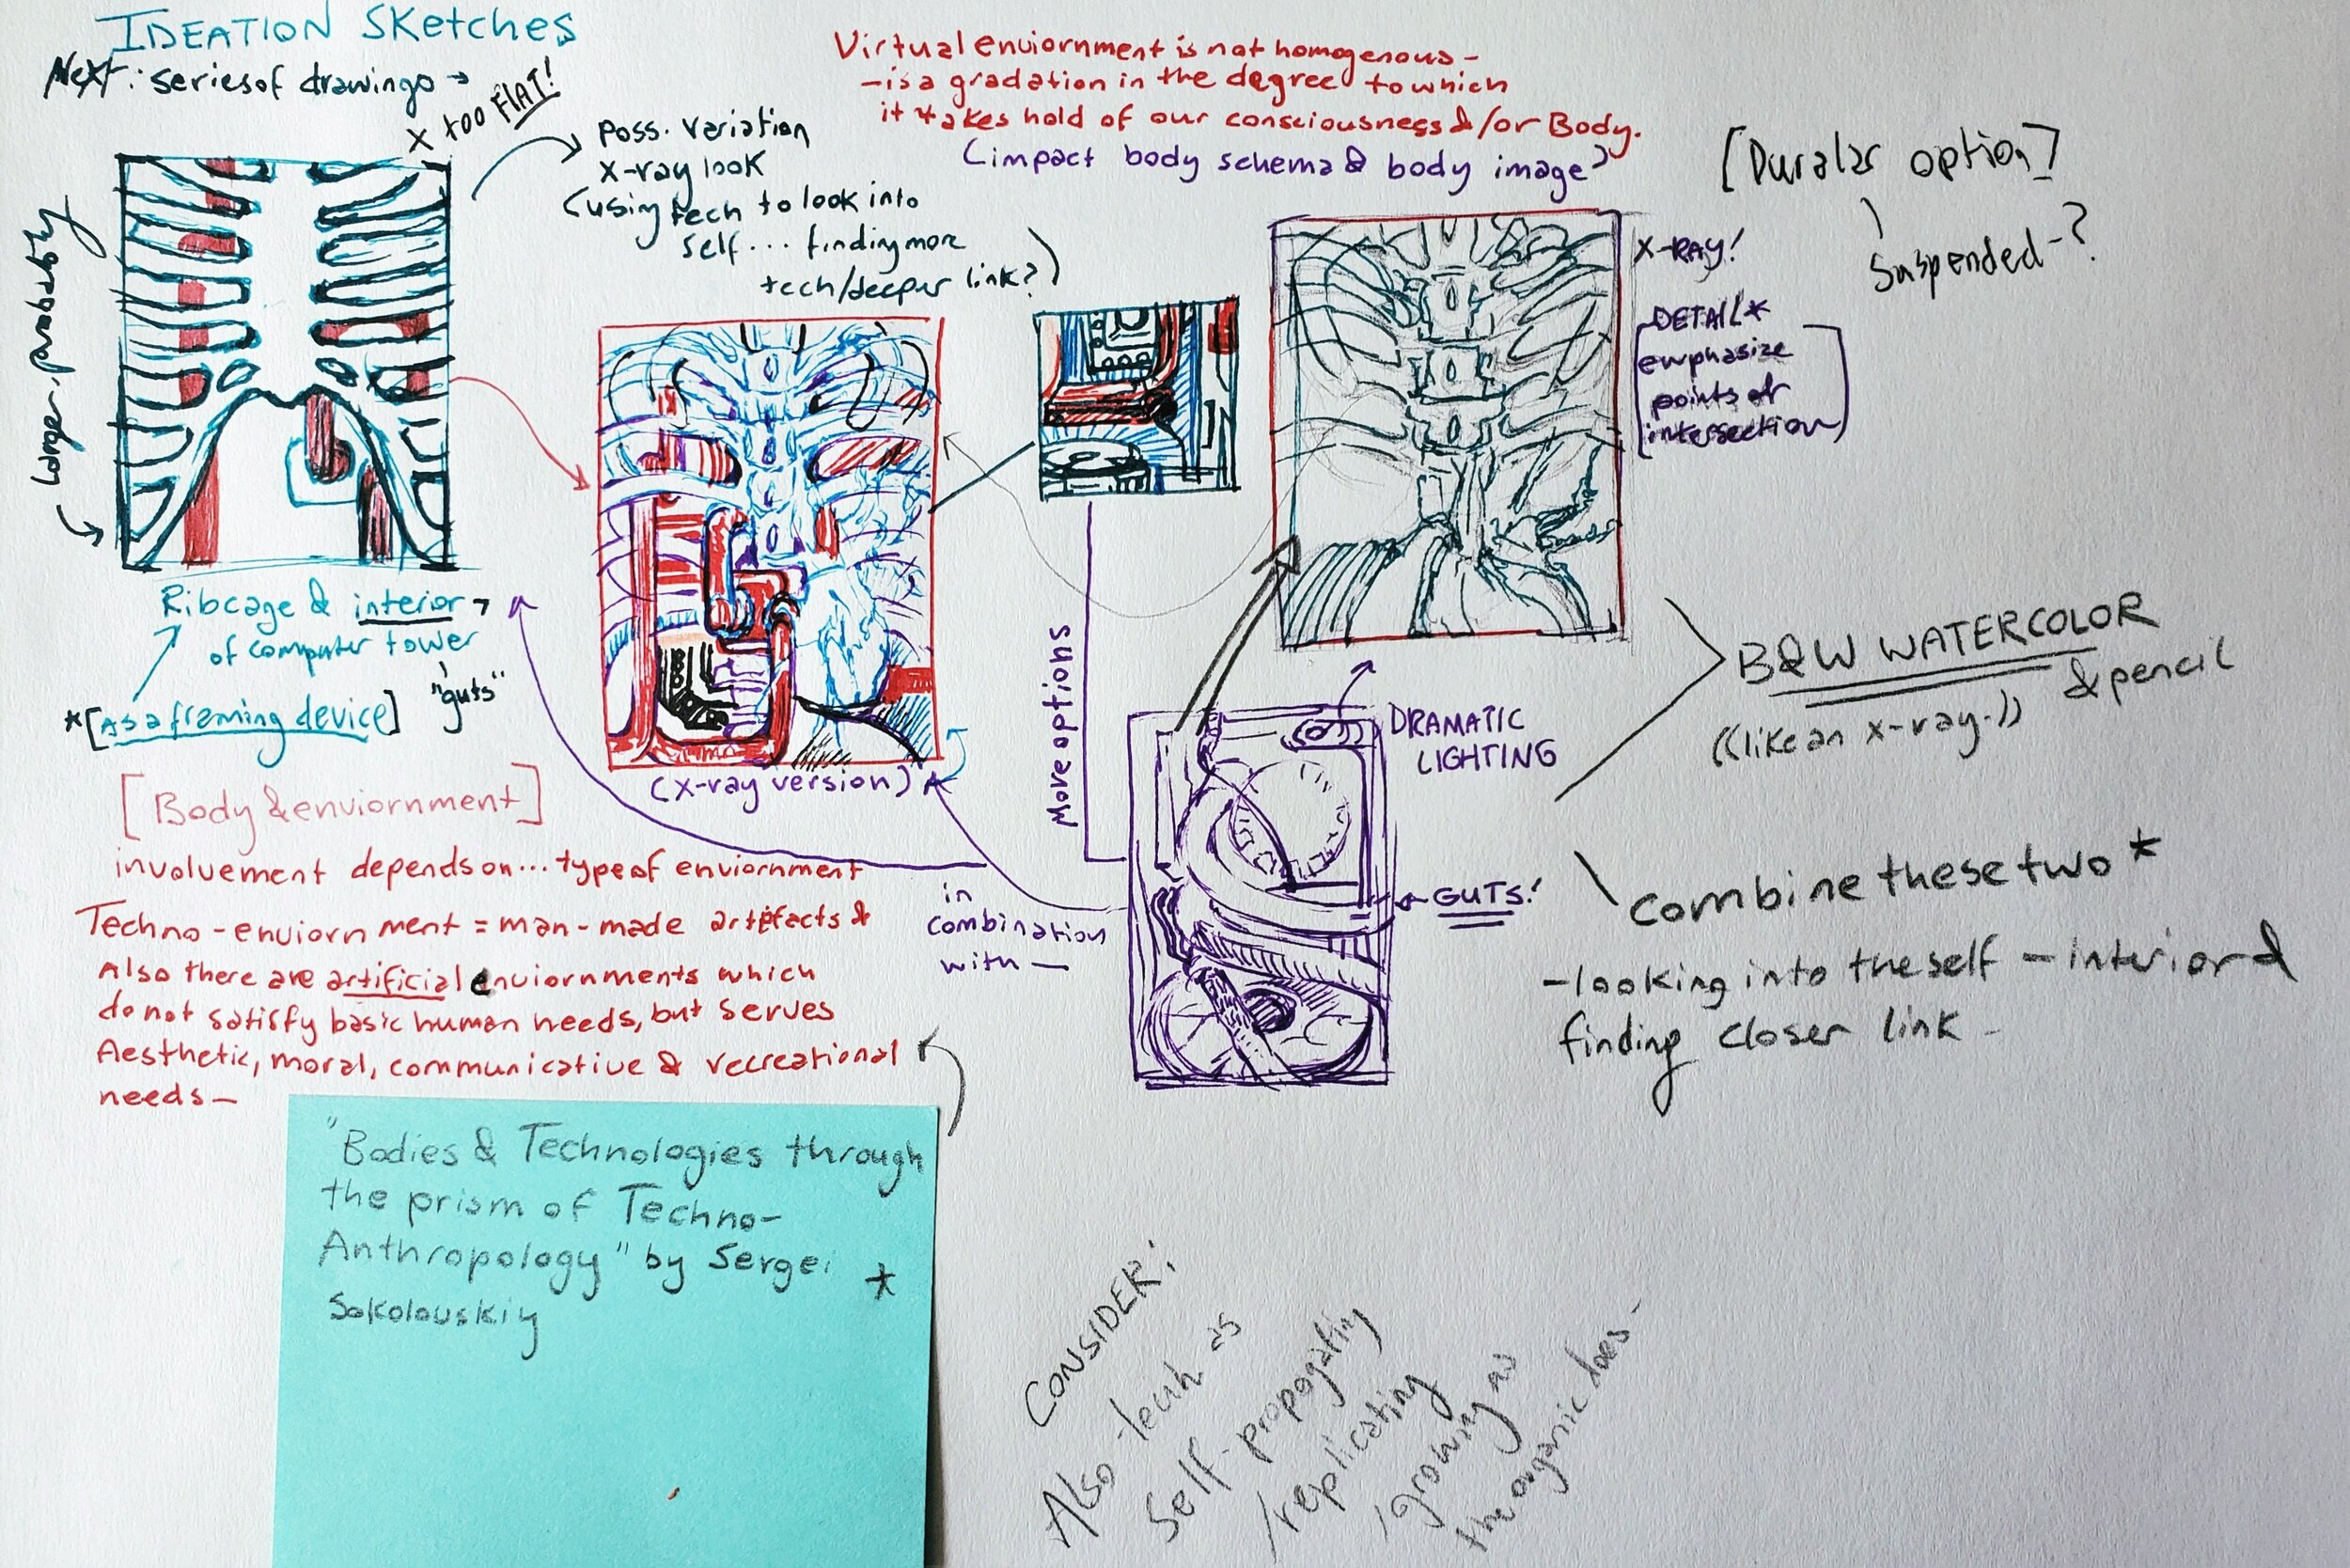 IDEATION SKetches
Next: series of drawings →
X too FLAT!
Large - probably
poss. variation
x-ray look
(using tech to look into
self... finding more
tech/deeper link?)
Virtual enviornment is not homogenous -
- is a gradation in the degree to which
it takes hold of our consciousness & /or Body.
(impact body schema & body image)
[Duralar option]
Suspended - ?
X-RAY!
DETAIL*
emphasize
points of
intersection
Ribcage & interior →
of computer tower
"guts"
*[As a framing device]
(x-ray version)
More options
DRAMATIC
LIGHTING
← GUTS!
in
combination
with —
B&W WATERCOLOR
& pencil
((like an x-ray.))
combine these two *
- looking into the self - interior &
finding closer link -
[Body & enviornment]
involvement depends on... type of enviornment
Techno-enviornment = man-made artifacts &
Also there are artificial enviornments which
do not satisfy basic human needs, but serves
Aesthetic, moral, communicative & recreational
needs —
"Bodies & Technologies through
the prism of Techno-
Anthropology" by Sergei *
Sokolovskiy
CONSIDER:
Also tech as
Self-propogating
/replicating
/growing as
the organic does -